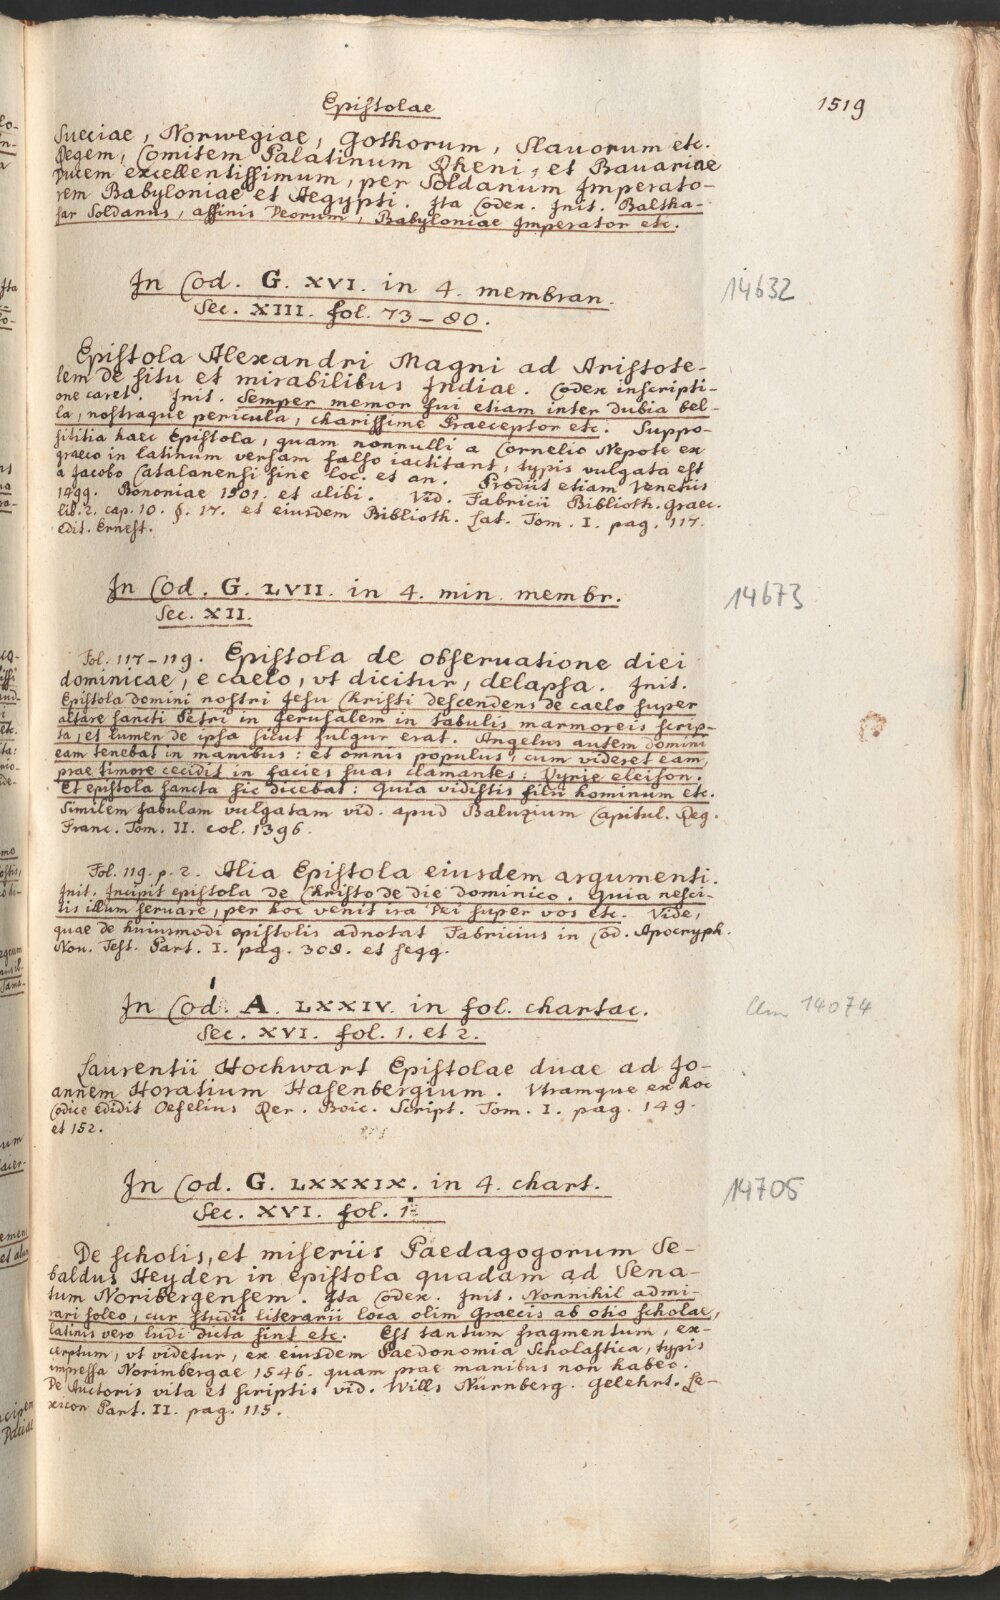 Epistolae
1519
Sueciae, Norwegiae, Gothorum, Slauorum etc.
Regem, Comitem Palatinum Rheni, et Bauariae
Ducem excellentissimum, per Soldanum Imperato-
rem Babyloniae et Aegypti. Ita Codex. Init. Baltha-
sar Soldanus, affinis Deorum, Babyloniae Imperator etc.
In Cod. G. XVI. in 4. membran.
14632
Sec. XIII. fol. 73-80.
Epistola Alexandri Magni ad Aristote-
lem de situ et mirabilibus Indiae. Codex inscripti-
one caret. Init. Semper memor tui etiam inter dubia bel-
la, nostraque pericula, charissime Praeceptor etc. Suppo-
sititia haec Epistola, quam nonnulli a Cornelio Nepote ex
graeco in latinum versam falso iactitant, typis vulgata est
a Jacobo Catalanensi sine loc. et an. Prodiit etiam Venetiis
1499. Bononiae 1501. et alibi. Vid. Fabricii Biblioth. graec.
lib. 2. cap. 10. §. 17. et eiusdem Biblioth. Lat. Tom. I. pag. 117.
edit. Ernest.
In Cod. G. LVII. in 4. min. membr.
14673
Sec. XII.
Fol. 117-119. Epistola de obseruatione diei
dominicae, e caelo, vt dicitur, delapsa. Init.
Epistola domini nostri Jesu Christi descendens de caelo super
altare sancti Petri in Jerusalem in tabulis marmoreis scrip-
ta, et lumen de ipsa sicut fulgur erat. Angelus autem domini
eam tenebat in manibus: et omnis populus, cum videret eam,
prae timore cecidit in facies suas clamantes: Kyrie eleison.
Et epistola sancta sic dicebat: Quia vidistis filii hominum etc.
Similem fabulam vulgatam vid. apud Baluzium Capitul. Reg.
Franc. Tom. II. col. 1396.
Fol. 119. p. 2. Alia Epistola eiusdem argumenti.
Init. Incipit epistola de Christo de die dominico. Quia nesci-
tis illum seruare, per hoc venit ira Dei super vos etc. Vide,
quae de huiusmodi epistolis adnotat Fabricius in Cod. Apocryph.
Nou. Test. Part. I. pag. 308. et seqq.
In Cod. A. LXXIV. in fol. chartac.
Clm 14074
Sec. XVI. fol. 1. et 2.
Laurentii Hochwart Epistolae duae ad Jo-
annem Horatium Hasenbergium. Vtramque ex hoc
Codice edidit Oefelius Rer. Boic. Script. Tom. I. pag. 149.
et 152.
In Cod. G. LXXXIX. in 4. chart.
14705
Sec. XVI. fol. 1.
De scholis, et miseriis Paedagogorum Se-
baldus Heyden in epistola quadam ad Sena-
tum Noribergensem. Ita Codex. Init. Nonnihil admi-
rari soleo, cur studii literarii loca olim Graecis ab otio scholae,
latinis vero ludi dicta sint etc. Est tantum fragmentum, ex-
cerptum, vt videtur, ex eiusdem Paedonomia Scholastica, typis
impressa Norimbergae 1546. quam prae manibus non habeo.
De Auctoris vita et scriptis vid. Wills Nürnberg. Gelehrt. Le-
xicon Part. II. pag. 115.